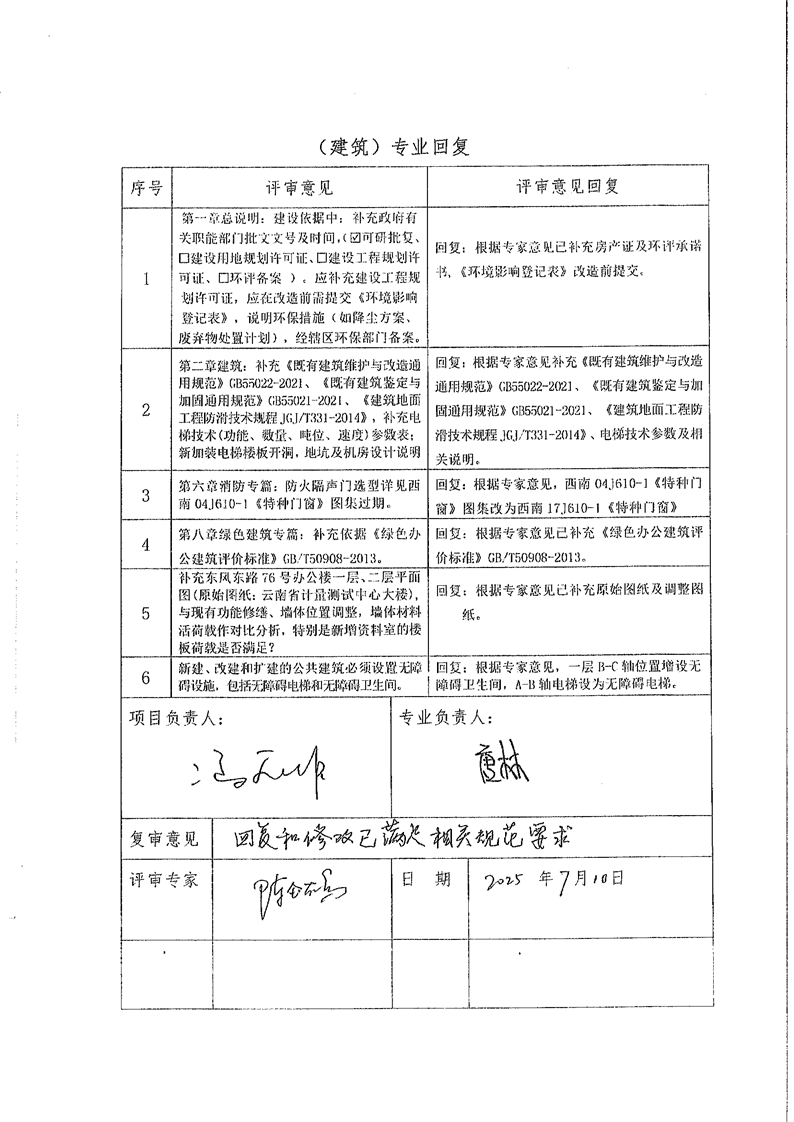 （建筑）专业回复
序号
评审意见
评审意见回复
1
第一章总说明：建设依据中：补充政府有
关职能部门批文文号及时间，（☑可研批复、
☐建设用地规划许可证、☐建设工程规划许
可证、☐环评备案 ）。应补充建设工程规
划许可证，应在改造前需提交《环境影响
登记表》，说明环保措施（如降尘方案、
废弃物处置计划），经辖区环保部门备案。
回复：根据专家意见已补充房产证及环评承诺
书，《环境影响登记表》改造前提交。
2
第二章建筑：补充《既有建筑维护与改造通
用规范》GB55022-2021、《既有建筑鉴定与
加固通用规范》GB55021-2021、《建筑地面
工程防滑技术规程JGJ/T331-2014》，补充电
梯技术（功能、数量、吨位、速度）参数表；
新加装电梯楼板开洞，地坑及机房设计说明
回复：根据专家意见补充《既有建筑维护与改造
通用规范》GB55022-2021、《既有建筑鉴定与加
固通用规范》GB55021-2021、《建筑地面工程防
滑技术规程JGJ/T331-2014》、电梯技术参数及相
关说明。
3
第六章消防专篇：防火隔声门选型详见西
南04J610-1《特种门窗》图集过期。
回复：根据专家意见，西南04J610-1《特种门
窗》图集改为西南17J610-1《特种门窗》
4
第八章绿色建筑专篇：补充依据《绿色办
公建筑评价标准》GB/T50908-2013。
回复：根据专家意见已补充《绿色办公建筑评
价标准》GB/T50908-2013。
5
补充东风东路76号办公楼一层、二层平面
图（原始图纸：云南省计量测试中心大楼），
与现有功能修缮、墙体位置调整，墙体材料
活荷载作对比分析，特别是新增资料室的楼
板荷载是否满足？
回复：根据专家意见已补充原始图纸及调整图
纸。
6
新建、改建和扩建的公共建筑必须设置无障
碍设施，包括无障碍电梯和无障碍卫生间。
回复：根据专家意见，一层B-C轴位置增设无
障碍卫生间，A-B轴电梯设为无障碍电梯。
项目负责人：
专业负责人：
唐林
复审意见
回复和修改已满足相关规范要求
评审专家
日 期
2025 年7月10日